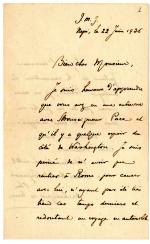 1
J M J
le 22 Juin 1936
Bien cher Monsieur,
Je suis heureux d'apprendre
que vous avez eu une entrevue
avec Monseigneur
qu'il y a quelque espoir du
côté de Washington. Je suis
peiné de n'avoir pas
rentrer à Rome pour causer
avec lui, n'ayant pas été très
bien ces temps derniers et
redoutant un voyage en automobile